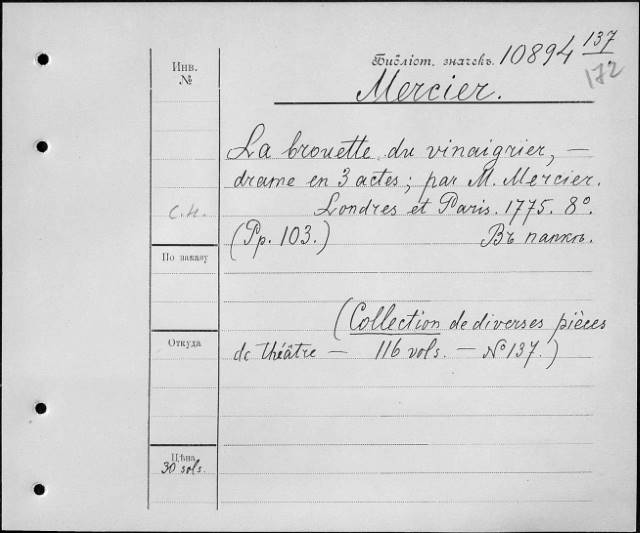 Инв.
№
Библіот. значекъ. 10894 137
172
Mercier.
La brouette du vinaigrier, —
drame en 3 actes; par M. Mercier.
Londres et Paris. 1775. 8º.
С.Н.
(Pp. 103.) Въ папкѣ.
По заказу
(Collection de diverses pièces
Откуда
de théâtre — 116 vols. — Nº 137.)
Цѣна
30 sols.